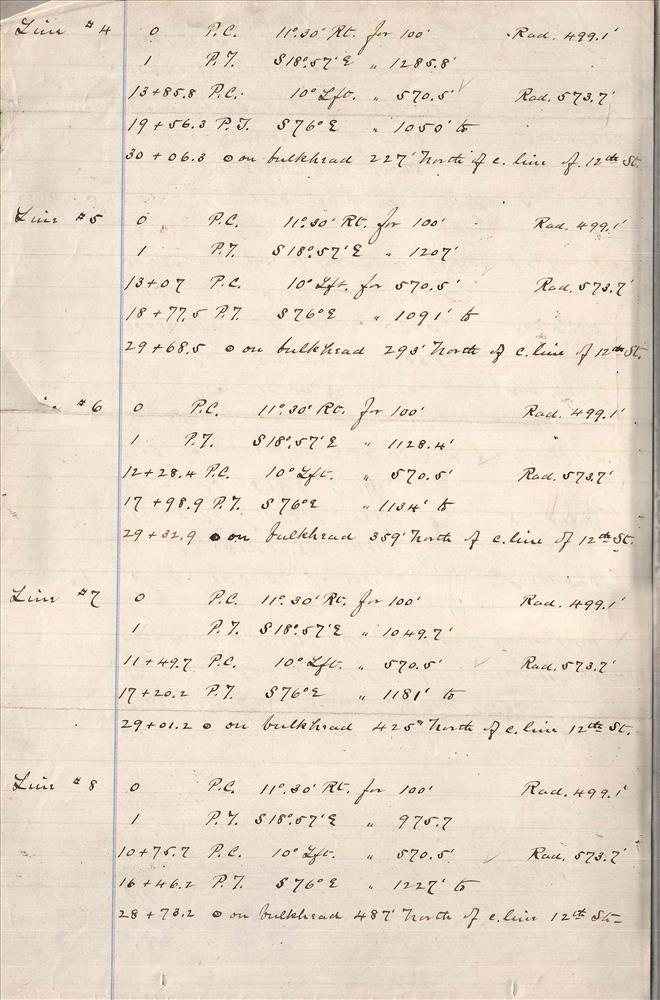 Line #4 0 P.C. 11°.30' Rt. for 100' Rad. 499.1'
1 P.T. S18°.57'E " 1285.8'
13+85.8 P.C. 10° Lft. " 570.5' Rad. 573.7'
19+56.3 P.T. S76°E " 1050' to
30+06.3 ⊙ on bulkhead 227' North of c. line of 12th St.
Line #5 0 P.C. 11°.30' Rt. for 100' Rad. 499.1'
1 P.T. S18°.57'E " 1207'
13+07 P.C. 10° Lft. for 570.5' Rad. 573.7'
18+77.5 P.T. S76°E " 1091' to
29+68.5 ⊙ on bulkhead 293' North of c. line of 12th St.
#6 0 P.C. 11°.30' Rt. for 100' Rad. 499.1'
1 P.T. S18°.57'E " 1128.4'
12+28.4 P.C. 10° Lft. " 570.5' Rad. 573.7'
17+98.9 P.T. S76°E " 1134' to
29+32.9 ⊙ on bulkhead 359' North of c. line of 12th St.
Line #7 0 P.C. 11°.30' Rt. for 100' Rad. 499.1'
1 P.T. S18°.57'E " 1049.7'
11+49.7 P.C. 10° Lft. " 570.5' Rad. 573.7'
17+20.2 P.T. S76°E " 1181' to
29+01.2 ⊙ on bulkhead 425" North of c. line 12th St.
Line #8 0 P.C. 11°.30' Rt. for 100' Rad. 499.1'
1 P.T. S18°.57'E " 975.7
10+75.7 P.C. 10° Lft. " 570.5' Rad. 573.7'
16+46.2 P.T. S76°E " 1227' to
28+73.2 ⊙ on bulkhead 487' North of c. line 12th St.